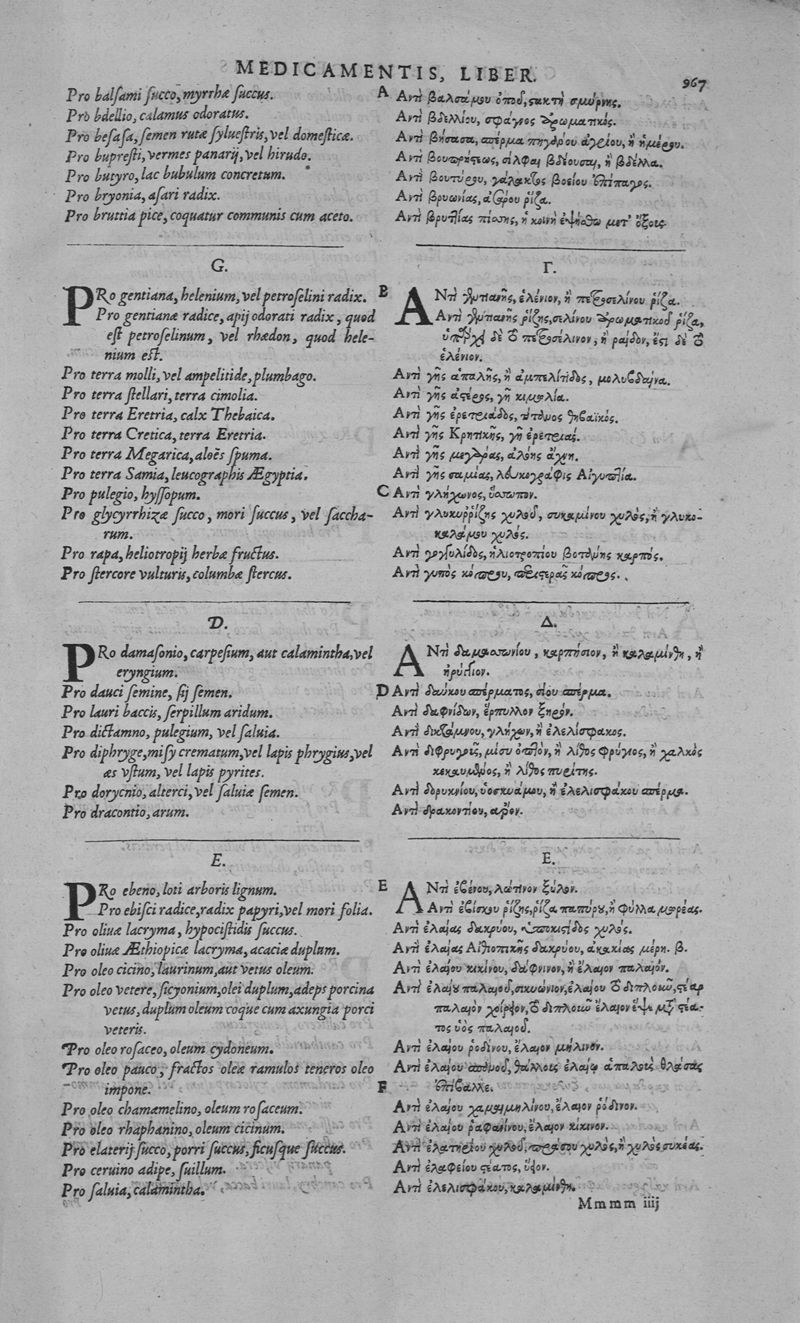 MEDICAMENTIS, LIBER.
967
Pro balsami succo, myrrhæ succus.
Pro bdellio, calamus odoratus.
Pro besasa, semen rutæ syluestris, vel domesticæ.
Pro bupresti, vermes panarij, vel hirudo.
Pro butyro, lac bubulum concretum.
Pro bryonia, asari radix.
Pro bruttia pice, coquatur communis cum aceto.
G.
PRo gentiana, helenium, vel petroselini radix.
Pro gentianæ radice, apij odorati radix, quod
est petroselinum, vel rhædon, quod hele-
nium est.
Pro terra molli, vel ampelitide, plumbago.
Pro terra stellari, terra cimolia.
Pro terra Eretria, calx Thebaica.
Pro terra Cretica, terra Eretria.
Pro terra Megarica, aloës spuma.
Pro terra Samia, leucographis Ægyptia.
Pro pulegio, hyssopum.
Pro glycyrrhizæ succo, mori succus, vel saccha-
rum.
Pro rapa, heliotropij herbæ fructus.
Pro stercore vulturis, columbæ stercus.
D.
PRo damasonio, carpesium, aut calamintha, vel
eryngium.
Pro dauci semine, sij semen.
Pro lauri baccis, serpillum aridum.
Pro dictamno, pulegium, vel saluia.
Pro diphryge, misy crematum, vel lapis phrygius, vel
æs vstum, vel lapis pyrites.
Pro dorycnio, alterci, vel saluiæ semen.
Pro dracontio, arum.
E.
PRo ebeno, loti arboris lignum.
Pro ebisci radice, radix papyri, vel mori folia.
Pro oliuæ lacryma, hypocistidis succus.
Pro oliuæ Æthiopicæ lacryma, acaciæ duplum.
Pro oleo cicino, laurinum, aut vetus oleum.
Pro oleo vetere, sicyonium, olei duplum, adeps porcina
vetus, duplum oleum coque cum axungia porci
veteris.
Pro oleo rosaceo, oleum cydoneum.
Pro oleo pauco, fractos oleæ ramulos teneros oleo
impone.
Pro oleo chamæmelino, oleum rosaceum.
Pro oleo rhaphanino, oleum cicinum.
Pro elaterij succo, porri succus, ficusque succus.
Pro ceruino adipe, suillum.
Pro saluia, calamintha.
A Αντὶ βαλσάμου ὀποῦ, στακτὴ σμύρνης.
Αντὶ βδελλίου, σφάγνος ἀρωματικός.
Αντὶ βήσασα, σπέρμα πηγάνου ἀγρίου, ἢ ἡμέρου.
Αντὶ βουπρήστεως, σίλφαι βδέουσαι, ἢ βδέλλα.
Αντὶ βουτύρου, γάλακτος βοείου ἐπίπαγος.
Αντὶ βρυωνίας, ἀσάρου ῥίζα.
Αντὶ βρυτίας πίσσης, ἡ κοινὴ ἑψήσθω μετ' ὄξους.
Γ.
B ΑΝτὶ γεντιανῆς, ἑλένιον, ἢ πετροσελίνου ῥίζα.
Αντὶ γεντιανῆς ῥίζης, σελίνου ἀρωματικοῦ ῥίζα,
ὑπάρχει δὲ τὸ πετροσέλινον, ἢ ραίδον, ἔστι δὲ τὸ
ἑλένιον.
Αντὶ γῆς ἁπαλῆς, ἢ ἀμπελίτιδος, μολύβδαινα.
Αντὶ γῆς ἀστέρος, γῆ κιμωλία.
Αντὶ γῆς ἐρετριάδος, τίτανος θηβαϊκός.
Αντὶ γῆς Κρητικῆς, γῆ ἐρετριάς.
Αντὶ γῆς μεγάρας, ἀλόης ἄχνη.
Αντὶ γῆς σαμίας, λευκογράφις Αἰγυπτία.
C Αντὶ γλήχωνος, ὕσσωπον.
Αντὶ γλυκυῤῥίζης χυλοῦ, συκαμίνου χυλὸς, ἢ γλυκο-
καλάμου χυλός.
Αντὶ γογγυλίδος, ἡλιοτροπίου βοτάνης καρπός.
Αντὶ γυπὸς κόπρου, περιστερᾶς κόπρος.
Δ.
ΑΝτὶ δαμασωνίου, καρπήσιον, ἢ καλαμίνθη, ἢ
ἠρύγγιον.
D Αντὶ δαύκου σπέρματος, σίου σπέρμα.
Αντὶ δαφνίδων, ἕρπυλλον ξηρόν.
Αντὶ δικτάμνου, γλήχων, ἢ ἐλελίσφακος.
Αντὶ διφρυγοῦς, μίσυ ὀπτὸν, ἢ λίθος φρύγιος, ἢ χαλκὸς
κεκαυμένος, ἢ λίθος πυρίτης.
Αντὶ δορυκνίου, ὑοσκυάμου, ἢ ἐλελισφάκου σπέρμα.
Αντὶ δρακοντίου, ἄρον.
Ε.
E ΑΝτὶ ἐβένου, λώτινον ξύλον.
Αντὶ ἐβίσκου ῥίζης, ῥίζα παπύρου, ἢ φύλλα μορέας.
Αντὶ ἐλαίας δακρύου, ὑποκιστίδος χυλός.
Αντὶ ἐλαίας Αἰθιοπικῆς δακρύου, ἀκακίας μέρη. β.
Αντὶ ἐλαίου κικίνου, δάφνινον, ἢ ἔλαιον παλαιόν.
Αντὶ ἐλαίου παλαιοῦ, σικυώνιον, ἐλαίου τὸ διπλοῦν, στέαρ
παλαιὸν χοίρειον, τὸ διπλοῦν ἔλαιον ἕψε μετὰ στέα-
τος ὑὸς παλαιοῦ.
Αντὶ ἐλαίου ῥοδίνου, ἔλαιον μήλινον.
Αντὶ ἐλαίου σπανοῦ, θαλλοὺς ἐλαίας ἁπαλοὺς θλάσας
F ἐπίβαλλε.
Αντὶ ἐλαίου χαμαιμηλίνου, ἔλαιον ῥόδινον.
Αντὶ ἐλαίου ῥαφανίνου, ἔλαιον κίκινον.
Αντὶ ἐλατηρίου χυλοῦ, πράσου χυλὸς, ἢ χυλὸς συκέας.
Αντὶ ἐλαφείου στέατος, ὕειον.
Αντὶ ἐλελισφάκου, καλαμίνθη.
Mmmm iiij